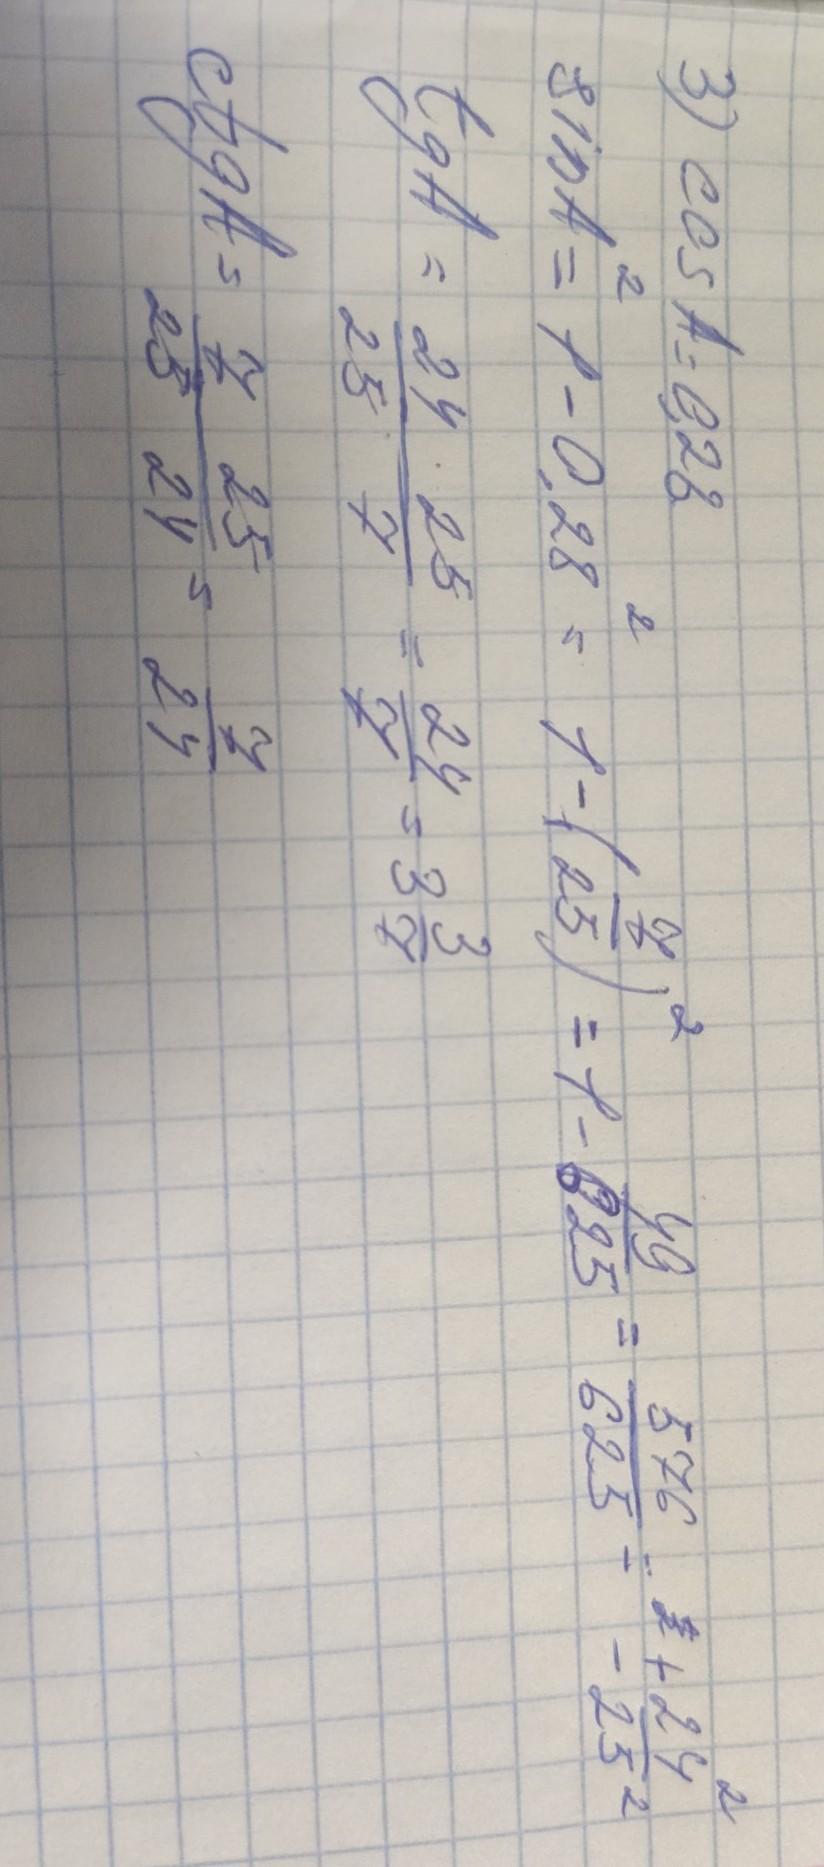 3) cos A = 0,28
sin A² = 1 - 0,28² = 1 - (7/25)² = 1 - 49/625 = 576/625 = ± 24²/25²
tg A = 24/25 · 25/7 = 24/7 = 3 3/7
ctg A = 7/25 25/24 = 7/24